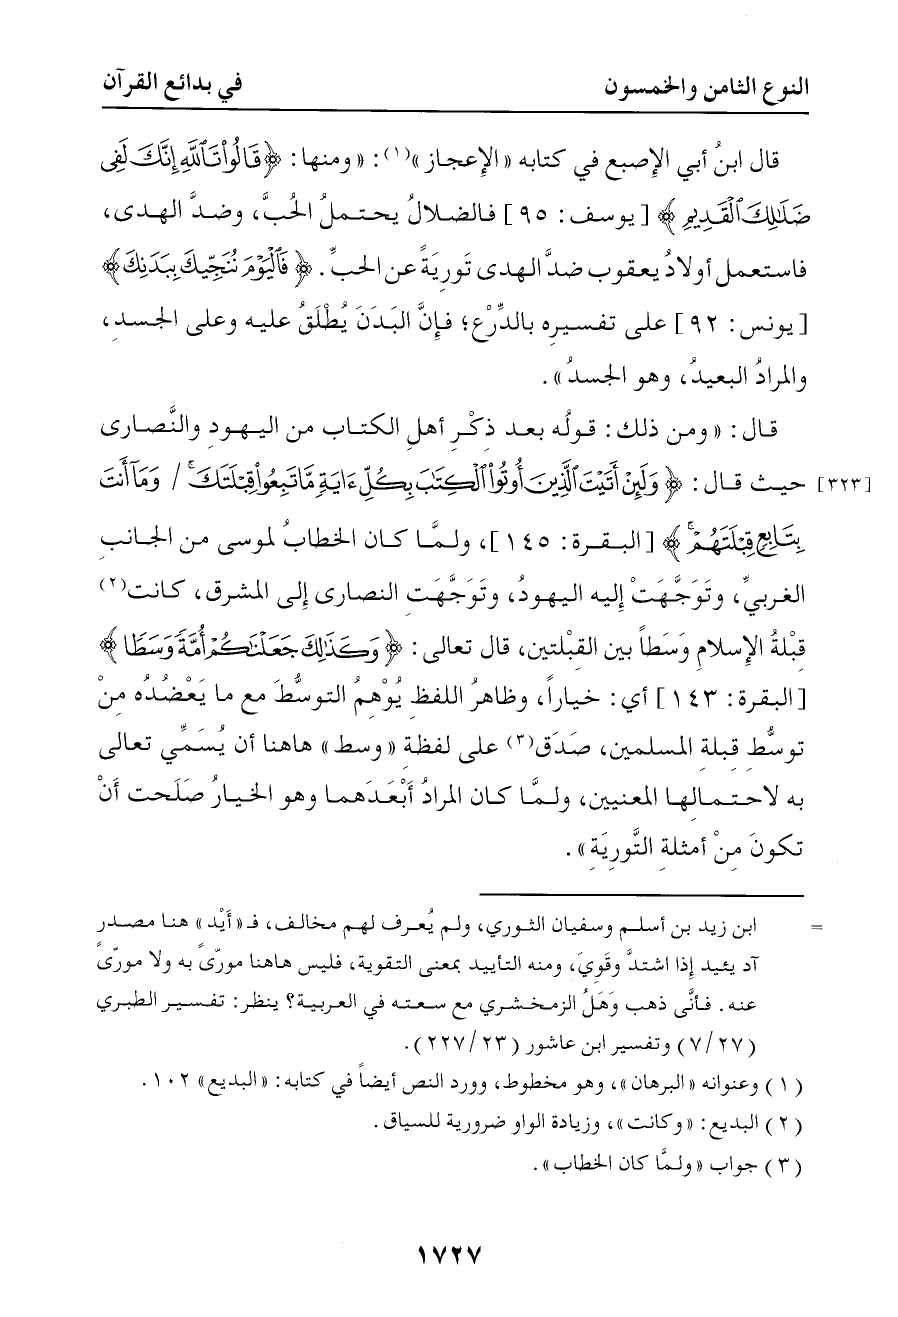 النوع الثامن والخمسون في بدائع القرآن
قال ابنُ أبي الإصبع في كتابه «الإعجاز»(١): «ومنها: ﴿قَالُوا۟ تَٱللَّهِ إِنَّكَ لَفِى
ضَلَٰلِكَ ٱلْقَدِيمِ﴾ [يوسف: ٩٥] فالضلالُ يحتملُ الحُبَّ، وضدَّ الهدى،
فاستعمل أولادُ يعقوب ضدَّ الهدى تَورِيَةً عن الحبِّ. ﴿فَٱلْيَوْمَ نُنَجِّيكَ بِبَدَنِكَ﴾
[يونس: ٩٢] على تفسيرِه بالدِّرْعِ؛ فإنَّ البَدَنَ يُطْلَقُ عليه وعلى الجسدِ،
والمرادُ البعيدُ، وهو الجسدُ».
قال: «ومن ذلك: قولُه بعد ذكْرِ أهلِ الكتاب من اليهودِ والنَّصارى
حيث قال: ﴿وَلَئِنْ أَتَيْتَ ٱلَّذِينَ أُوتُوا۟ ٱلْكِتَٰبَ بِكُلِّ ءَايَةٍ مَّا تَبِعُوا۟ قِبْلَتَكَ ۚ / وَمَآ أَنتَ [٣٢٣]
بِتَابِعٍ قِبْلَتَهُمْ ۚ﴾ [البقرة: ١٤٥]، ولمَّا كان الخطابُ لموسى من الجانبِ
الغربيِّ، وتَوَجَّهَتْ إليه اليهودُ، وتَوَجَّهَتِ النصارى إلى المشرق، كانت(٢)
قبْلةُ الإسلامِ وَسَطاً بين القبْلتين، قال تعالى: ﴿وَكَذَٰلِكَ جَعَلْنَٰكُمْ أُمَّةً وَسَطًا﴾
[البقرة: ١٤٣] أي: خياراً، وظاهرُ اللفظِ يُوْهِمُ التوسُّطَ مع ما يَعْضُدُه مِنْ
توسُّطِ قبلةِ المسلمين، صَدَق(٣) على لفظةِ «وسط» هاهنا أن يُسَمِّيَ تعالى
به لاحتمالِها المعنيين، ولمَّا كان المرادُ أبْعَدَهما وهو الخيارُ صلَحت أنْ
تكونَ مِنْ أمثلةِ التَّورِيَةِ».
= ابن زيد بن أسلم وسفيان الثوري، ولم يُعرف لهم مخالف، فـ«أَيْد» هنا مصدر
آد يئيد إذا اشتدَّ وقَوِيَ، ومنه التأييد بمعنى التقوية، فليس هاهنا مورّىً به ولا مورّىً
عنه. فأنَّى ذهب وَهَلُ الزمخشري مع سعته في العربية؟ ينظر: تفسير الطبري
(٧/٢٧) وتفسير ابن عاشور (٢٢٧/٢٣).
(١) وعنوانه «البرهان»، وهو مخطوط، وورد النص أيضاً في كتابه: «البديع» ١٠٢.
(٢) البديع: «وكانت»، وزيادة الواو ضرورية للسياق.
(٣) جواب «ولمَّا كان الخطاب».
١٧٢٧